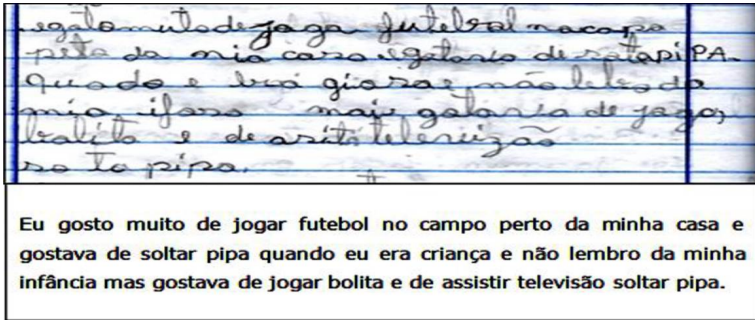 egatomutodejoga futebral nacapo
peta da mia casa igataria de sotapiPA.
quado e
mia ifasa mais gataria de jagar
balita e de asiti televizão
so ta pipa.
Eu gosto muito de jogar futebol no campo perto da minha casa e
gostava de soltar pipa quando eu era criança e não lembro da minha
infância mas gostava de jogar bolita e de assistir televisão soltar pipa.